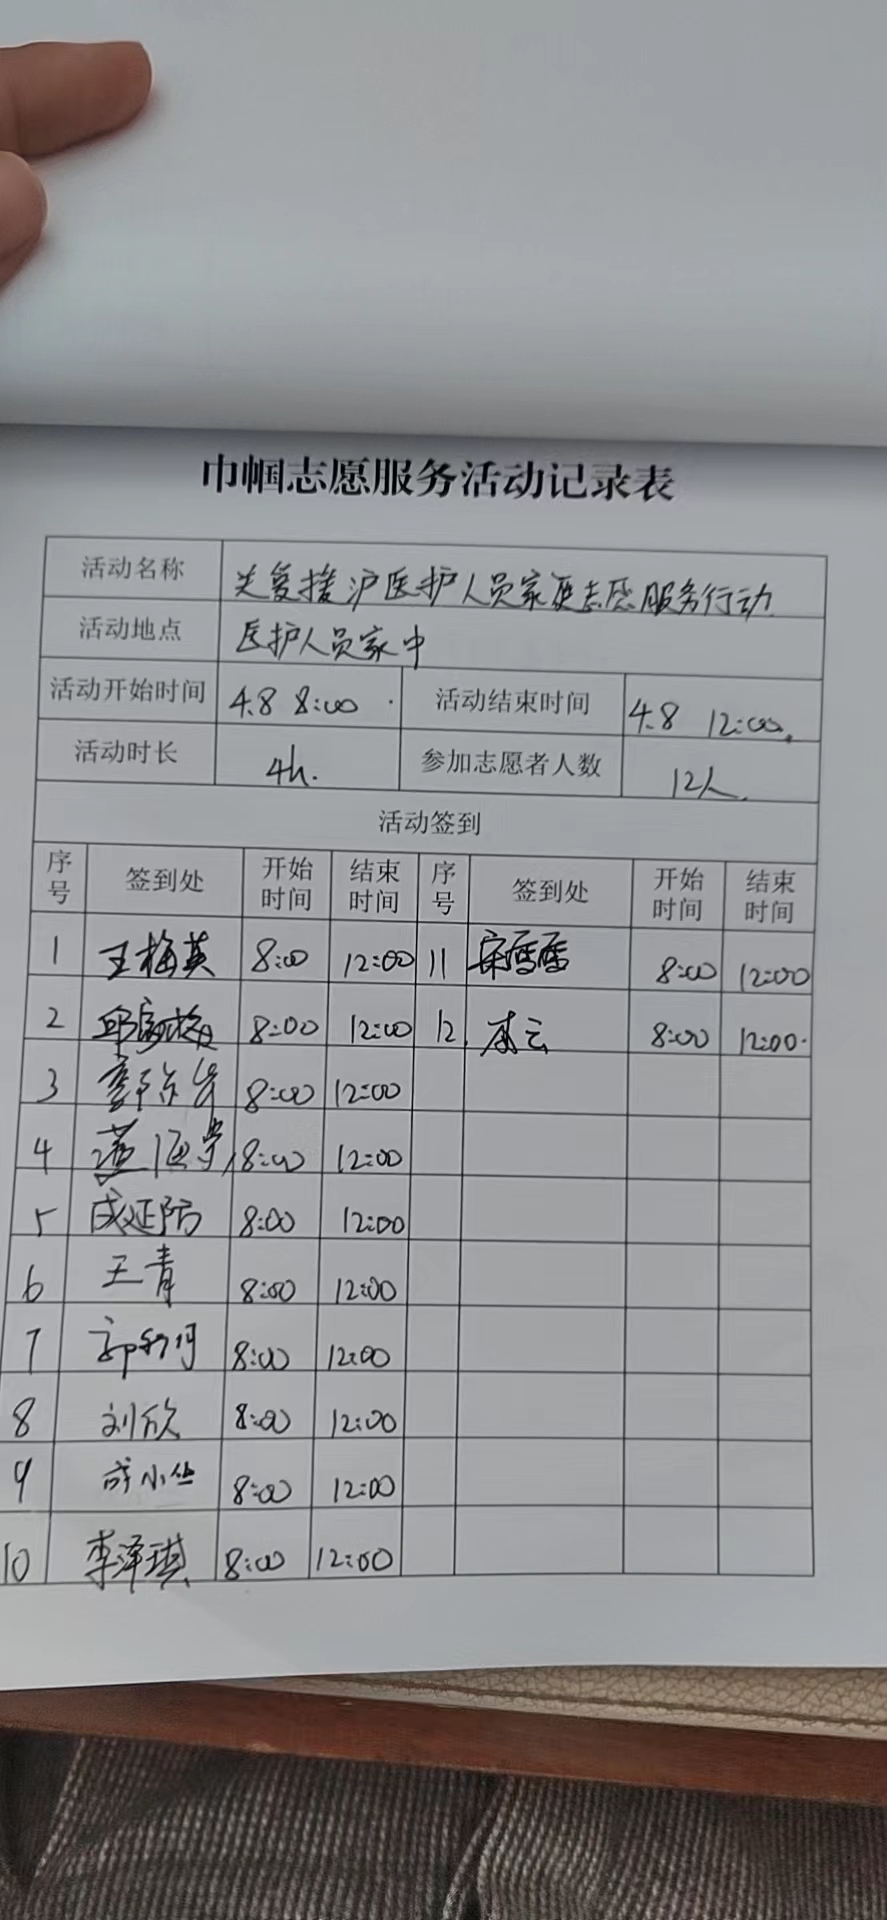 巾帼志愿服务活动记录表
活动名称 关爱援沪医护人员家庭志愿服务行动
活动地点 医护人员家中
活动开始时间 4.8 8:00 活动结束时间 4.8 12:00
活动时长 4h. 参加志愿者人数 12人
活动签到
序号 签到处 开始时间 结束时间 序号 签到处 开始时间 结束时间
1 王梅英 8:00 12:00 11 8:00 12:00
2 8:00 12:00 12 8:00 12:00
3 8:00 12:00
4 8:00 12:00
5 成延防 8:00 12:00
6 王青 8:00 12:00
7 8:00 12:00
8 刘欣 8:00 12:00
9 8:00 12:00
10 李泽琪 8:00 12:00